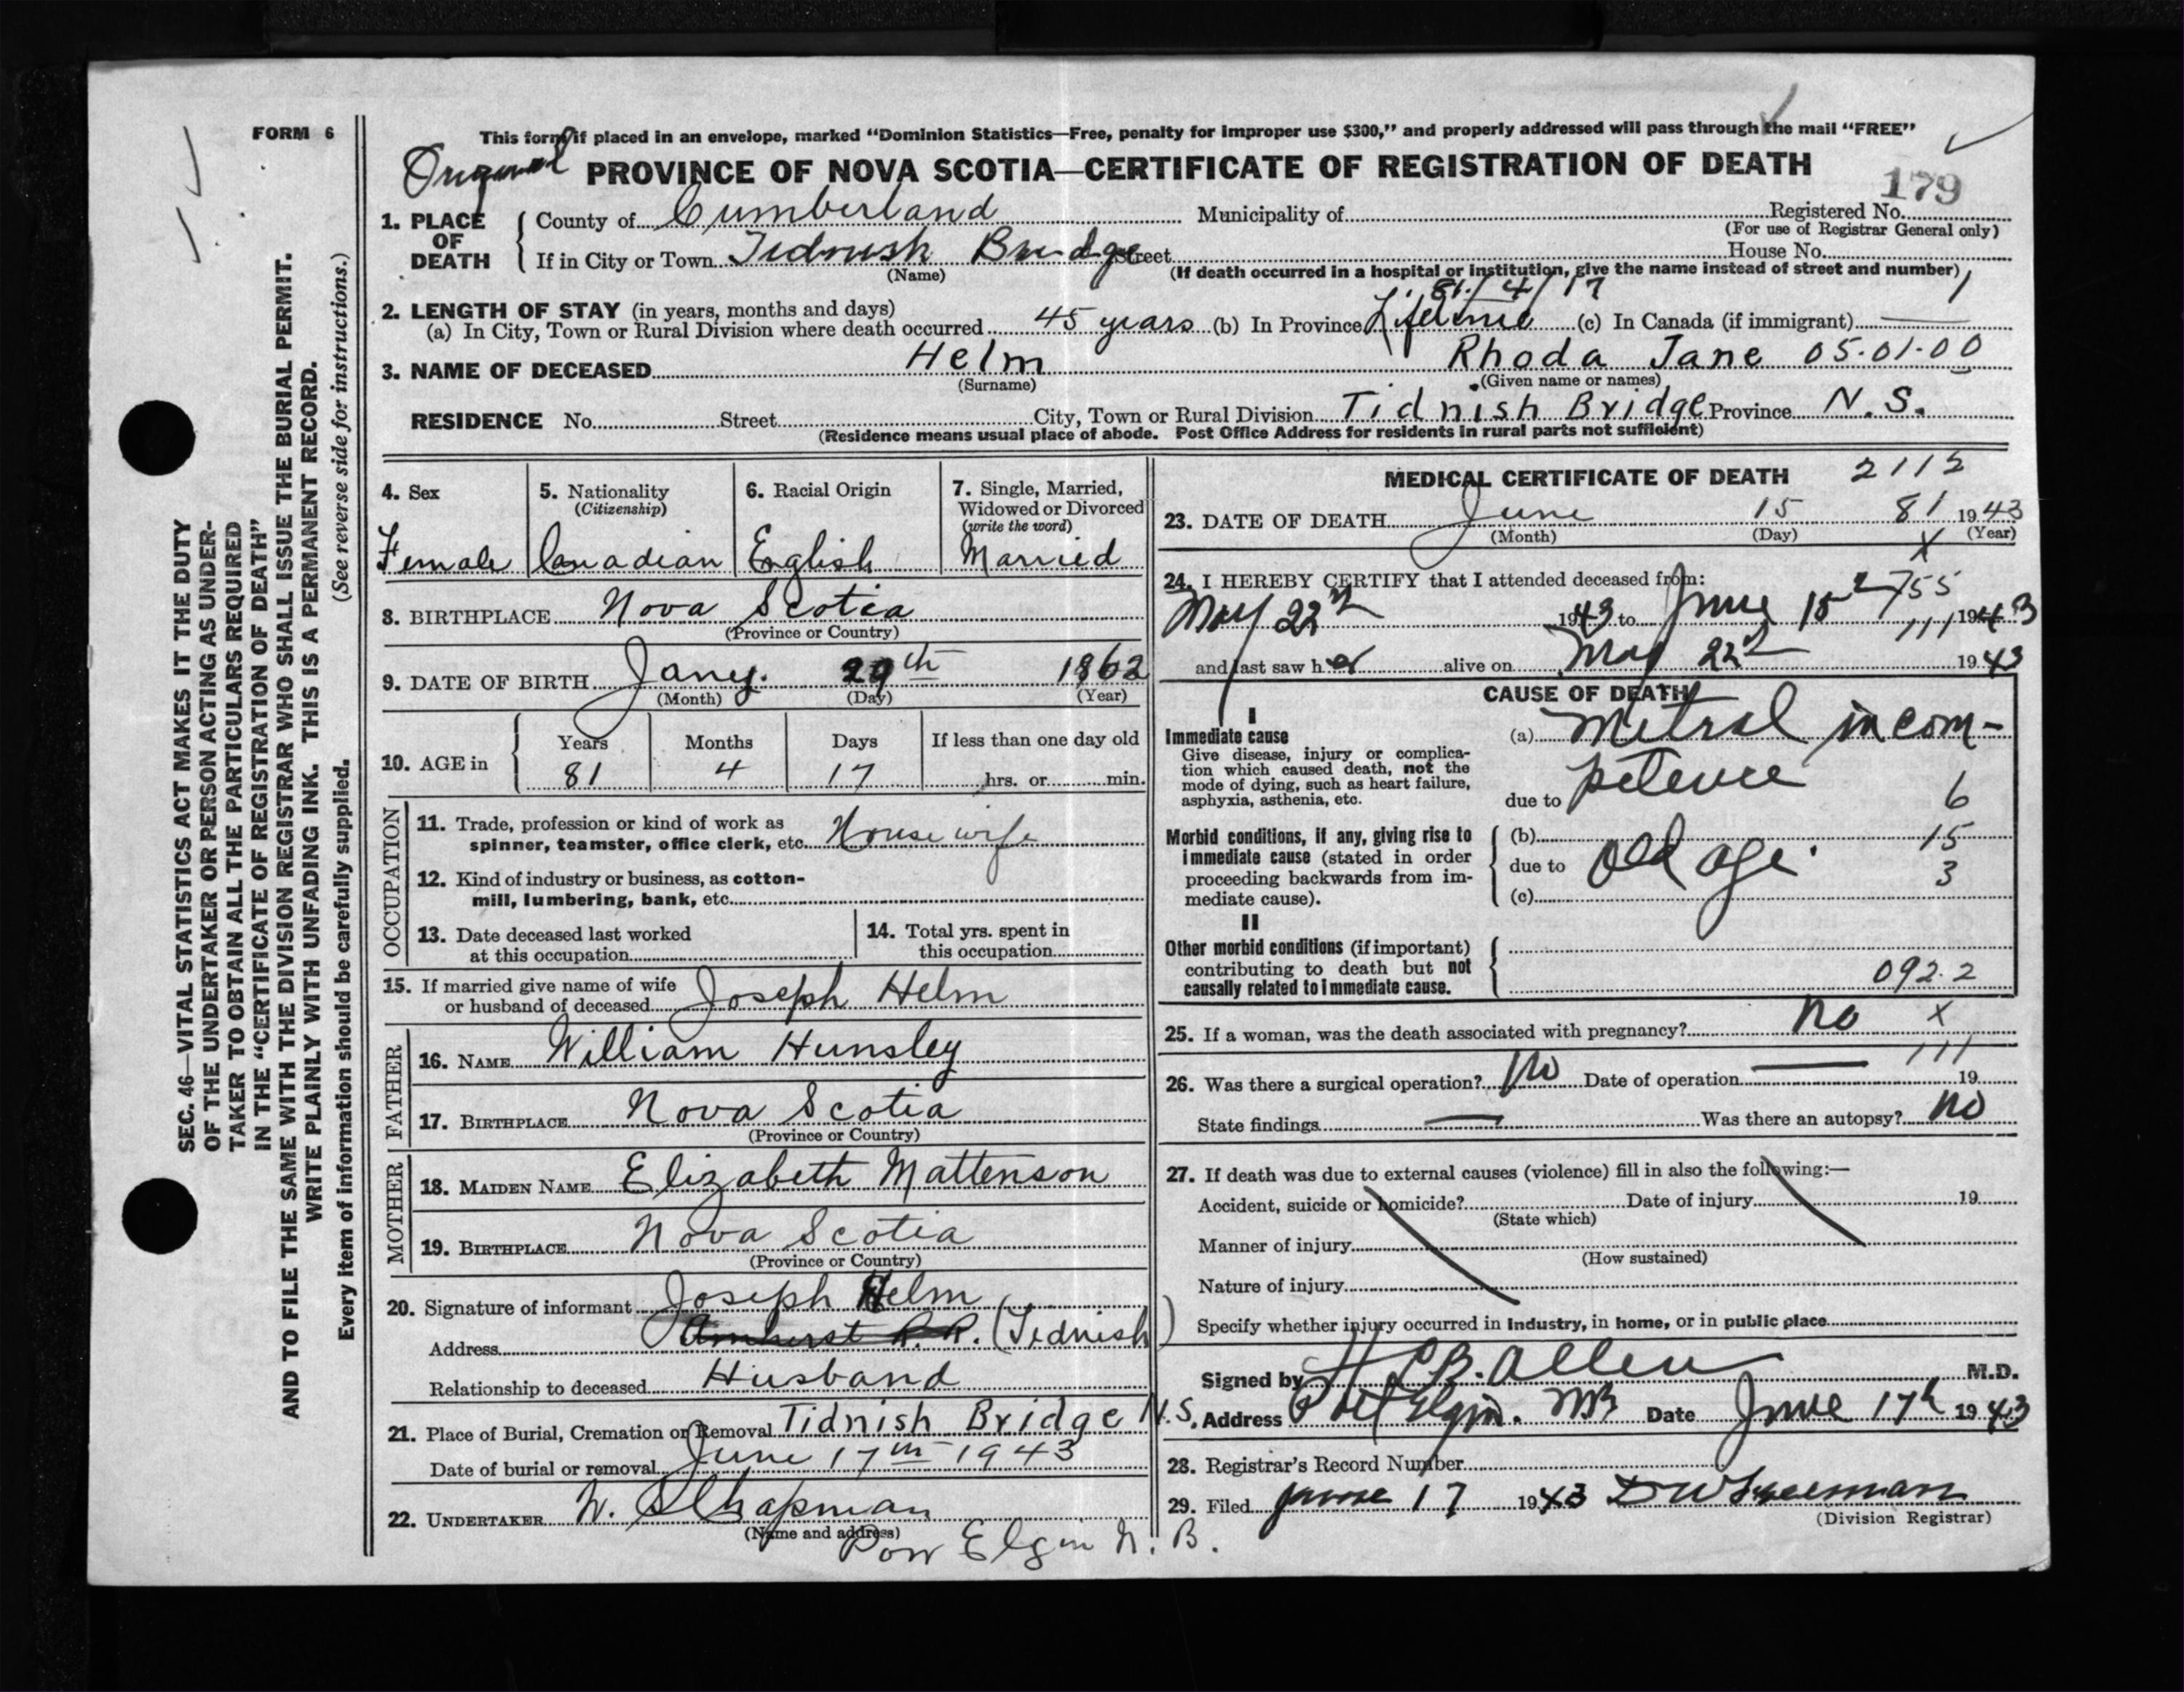 FORM 6
This form if placed in an envelope, marked “Dominion Statistics—Free, penalty for improper use $300,” and properly addressed will pass through the mail “FREE”
Original PROVINCE OF NOVA SCOTIA—CERTIFICATE OF REGISTRATION OF DEATH
179
1. PLACE OF DEATH County of Cumberland Municipality of Registered No.
(For use of Registrar General only)
If in City or Town Tidnish Bridge Street House No.
(Name) (If death occurred in a hospital or institution, give the name instead of street and number)
81/4/17
2. LENGTH OF STAY (in years, months and days)
(a) In City, Town or Rural Division where death occurred 45 years (b) In Province Lifetime (c) In Canada (if immigrant) —
3. NAME OF DECEASED Helm Rhoda Jane 05.01.00
(Surname) (Given name or names)
RESIDENCE No. Street City, Town or Rural Division Tidnish Bridge Province N.S.
(Residence means usual place of abode. Post Office Address for residents in rural parts not sufficient)
4. Sex 5. Nationality (Citizenship) 6. Racial Origin 7. Single, Married, Widowed or Divorced (write the word)
Female Canadian English Married
8. BIRTHPLACE Nova Scotia
(Province or Country)
9. DATE OF BIRTH Jany. 29th 1862
(Month) (Day) (Year)
10. AGE in Years Months Days If less than one day old
81 4 17 hrs. or min.
OCCUPATION
11. Trade, profession or kind of work as
spinner, teamster, office clerk, etc. Housewife
12. Kind of industry or business, as cotton-
mill, lumbering, bank, etc.
13. Date deceased last worked
at this occupation
14. Total yrs. spent in
this occupation
15. If married give name of wife
or husband of deceased Joseph Helm
FATHER
16. NAME William Hunsley
17. BIRTHPLACE Nova Scotia
(Province or Country)
MOTHER
18. MAIDEN NAME Elizabeth Mattenson
19. BIRTHPLACE Nova Scotia
(Province or Country)
20. Signature of informant Joseph Helm
Address Amherst R.R. (Tidnish)
Relationship to deceased Husband
21. Place of Burial, Cremation or Removal Tidnish Bridge N.S.
Date of burial or removal June 17th 1943
22. UNDERTAKER Chapman
(Name and address)
Port Elgin N.B.
MEDICAL CERTIFICATE OF DEATH 2112
23. DATE OF DEATH June 15 81 1943
(Month) (Day) (Year)
X
24. I HEREBY CERTIFY that I attended deceased from:
755
May 22 1943 to June 15 1943
111
and last saw her alive on May 22 1943
CAUSE OF DEATH
I
Immediate cause
Give disease, injury or complica-
tion which caused death, not the
mode of dying, such as heart failure,
asphyxia, asthenia, etc.
(a) Mitral incom-
due to petence 6
Morbid conditions, if any, giving rise to
immediate cause (stated in order
proceeding backwards from im-
mediate cause).
(b) 15
due to Old age. 3
(c)
II
Other morbid conditions (if important)
contributing to death but not
causally related to immediate cause.
092.2
25. If a woman, was the death associated with pregnancy? No X
111
26. Was there a surgical operation? No Date of operation — 19
State findings — Was there an autopsy? No
27. If death was due to external causes (violence) fill in also the following:—
Accident, suicide or homicide? Date of injury 19
(State which)
Manner of injury
(How sustained)
Nature of injury
Specify whether injury occurred in industry, in home, or in public place
Signed by Allen M.D.
Address Port Elgin. NB Date June 17th 1943
28. Registrar's Record Number
29. Filed June 17 1943
(Division Registrar)
SEC. 46—VITAL STATISTICS ACT MAKES IT THE DUTY
OF THE UNDERTAKER OR PERSON ACTING AS UNDER-
TAKER TO OBTAIN ALL THE PARTICULARS REQUIRED
IN THE “CERTIFICATE OF REGISTRATION OF DEATH”
AND TO FILE THE SAME WITH THE DIVISION REGISTRAR WHO SHALL ISSUE THE BURIAL PERMIT.
WRITE PLAINLY WITH UNFADING INK. THIS IS A PERMANENT RECORD.
Every item of information should be carefully supplied. (See reverse side for instructions.)